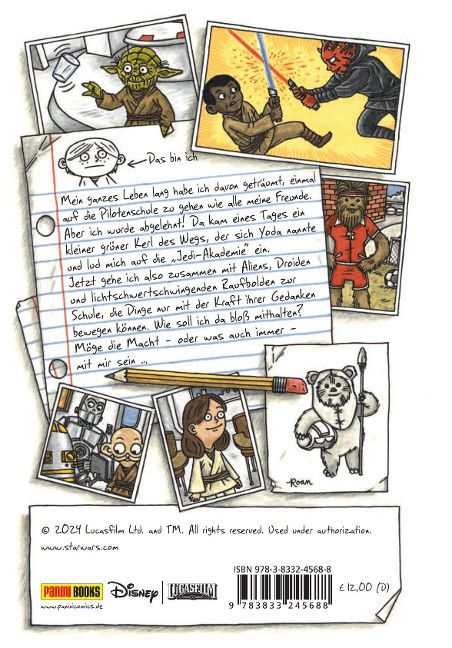 Das bin ich
Mein ganzes Leben lang habe ich davon geträumt, einmal
auf die Pilotenschule zu gehen wie alle meine Freunde.
Aber ich wurde abgelehnt! Da kam eines Tages ein
kleiner grüner Kerl des Wegs, der sich Yoda nannte
und lud mich auf die „Jedi-Akademie" ein.
Jetzt gehe ich also zusammen mit Aliens, Droiden
und lichtschwertschwingenden Raufbolden zur
Schule, die Dinge nur mit der Kraft ihrer Gedanken
bewegen können. Wie soll ich da bloß mithalten?
Möge die Macht – oder was auch immer –
mit mir sein ...
Roan
© 2024 Lucasfilm Ltd. and TM. All rights reserved. Used under authorization.
www.starwars.com
ISBN 978-3-8332-4568-8
PANINI BOOKS
Disney
LUCASFILM
€ 12,00 (D)
www.paninicomics.de
9 783833 245688